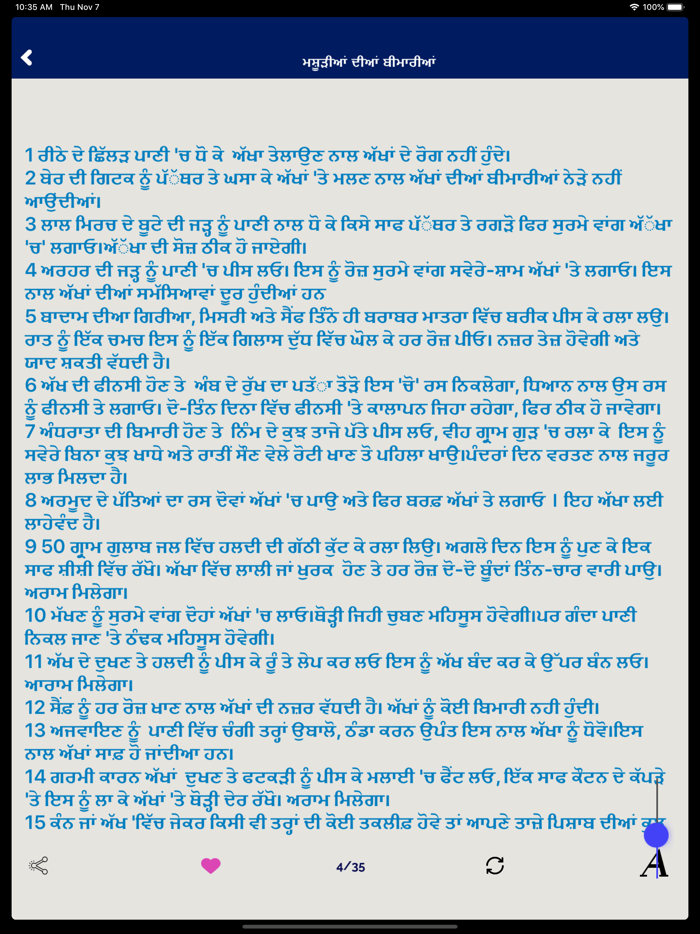 10:35 AM Thu Nov 7
100%
ਮਸੂੜੀਆਂ ਦੀਆਂ ਬੀਮਾਰੀਆਂ
1 ਰੀਠੇ ਦੇ ਛਿੱਲੜ ਪਾਣੀ 'ਚ ਧੋ ਕੇ ਅੱਖਾ ਤੇਲਾਉਣ ਨਾਲ ਅੱਖਾਂ ਦੇ ਰੋਗ ਨਹੀਂ ਹੁੰਦੇ।
2 ਬੇਰ ਦੀ ਗਿਟਕ ਨੂੰ ਪੱੱਥਰ ਤੇ ਘਸਾ ਕੇ ਅੱਖਾਂ 'ਤੇ ਮਲਣ ਨਾਲ ਅੱਖਾਂ ਦੀਆਂ ਬੀਮਾਰੀਆਂ ਨੇੜੇ ਨਹੀਂ
ਆਉਂਦੀਆਂ।
3 ਲਾਲ ਮਿਰਚ ਦੇ ਬੂਟੇ ਦੀ ਜੜ੍ਹ ਨੂੰ ਪਾਣੀ ਨਾਲ ਧੋ ਕੇ ਕਿਸੇ ਸਾਫ ਪੱੱਥਰ ਤੇ ਰਗੜੋ ਫਿਰ ਸੁਰਮੇ ਵਾਂਗ ਅੱੱਖਾ
'ਚ' ਲਗਾਓ।ਅੱੱਖਾ ਦੀ ਸੋਜ਼ ਠੀਕ ਹੋ ਜਾਏਗੀ।
4 ਅਰਹਰ ਦੀ ਜੜ੍ਹ ਨੂੰ ਪਾਣੀ 'ਚ ਪੀਸ ਲਓ। ਇਸ ਨੂੰ ਰੋਜ਼ ਸੁਰਮੇ ਵਾਂਗ ਸਵੇਰੇ-ਸ਼ਾਮ ਅੱਖਾਂ 'ਤੇ ਲਗਾਓ। ਇਸ
ਨਾਲ ਅੱਖਾਂ ਦੀਆਂ ਸਮੱਸਿਆਵਾਂ ਦੂਰ ਹੁੰਦੀਆਂ ਹਨ
5 ਬਾਦਾਮ ਦੀਆ ਗਿਰੀਆ, ਮਿਸਰੀ ਅਤੇ ਸੌਂਫ ਤਿੰਨੋ ਹੀ ਬਰਾਬਰ ਮਾਤਰਾ ਵਿੱਚ ਬਰੀਕ ਪੀਸ ਕੇ ਰਲਾ ਲਉ।
ਰਾਤ ਨੂੰ ਇੱਕ ਚਮਚ ਇਸ ਨੂੰ ਇੱਕ ਗਿਲਾਸ ਦੁੱਧ ਵਿੱਚ ਘੋਲ ਕੇ ਹਰ ਰੋਜ਼ ਪੀਓ। ਨਜ਼ਰ ਤੇਜ਼ ਹੋਵੇਗੀ ਅਤੇ
ਯਾਦ ਸ਼ਕਤੀ ਵੱਧਦੀ ਹੈ।
6 ਅੱਖ ਦੀ ਫੀਨਸੀ ਹੋਣ ਤੇ ਅੰਬ ਦੇ ਰੁੱਖ ਦਾ ਪਤੱਾ ਤੋੜੋ ਇਸ 'ਚੋ' ਰਸ ਨਿਕਲੇਗਾ, ਧਿਆਨ ਨਾਲ ਉਸ ਰਸ
ਨੂੰ ਫੀਨਸੀ ਤੇ ਲਗਾਓ। ਦੋ-ਤਿੰਨ ਦਿਨਾ ਵਿੱਚ ਫੀਨਸੀ 'ਤੇ ਕਾਲਾਪਨ ਜਿਹਾ ਰਹੇਗਾ, ਫਿਰ ਠੀਕ ਹੋ ਜਾਵੇਗਾ।
7 ਅੰਧਰਾਤਾ ਦੀ ਬਿਮਾਰੀ ਹੋਣ ਤੇ ਨਿੰਮ ਦੇ ਕੁਝ ਤਾਜੇ ਪੱਤੇ ਪੀਸ ਲਓ, ਵੀਹ ਗ੍ਰਾਮ ਗੁੜ 'ਚ ਰਲਾ ਕੇ ਇਸ ਨੂੰ
ਸਵੇਰੇ ਬਿਨਾ ਕੁਝ ਖਾਧੇ ਅਤੇ ਰਾਤੀਂ ਸੌਣ ਵੇਲੇ ਰੋਟੀ ਖਾਣ ਤੋ ਪਹਿਲਾ ਖਾਉ।ਪੰਦਰਾਂ ਦਿਨ ਵਰਤਣ ਨਾਲ ਜਰੂਰ
ਲਾਭ ਮਿਲਦਾ ਹੈ।
8 ਅਰਮੂਦ ਦੇ ਪੱਤਿਆਂ ਦਾ ਰਸ ਦੋਵਾਂ ਅੱਖਾਂ 'ਚ ਪਾਉ ਅਤੇ ਫਿਰ ਬਰਫ਼ ਅੱਖਾਂ ਤੇ ਲਗਾਓ । ਇਹ ਅੱਖਾ ਲਈ
ਲਾਹੇਵੰਦ ਹੈ।
9 50 ਗ੍ਰਾਮ ਗੁਲਾਬ ਜਲ ਵਿੱਚ ਹਲਦੀ ਦੀ ਗੱਠੀ ਕੁੱਟ ਕੇ ਰਲਾ ਲਿਉ। ਅਗਲੇ ਦਿਨ ਇਸ ਨੂੰ ਪੁਣ ਕੇ ਇਕ
ਸਾਫ ਸ਼ੀਸ਼ੀ ਵਿੱਚ ਰੱਖੋ। ਅੱਖਾ ਵਿੱਚ ਲਾਲੀ ਜਾਂ ਖੁਰਕ ਹੋਣ ਤੇ ਹਰ ਰੋਜ਼ ਦੋ-ਦੋ ਬੂੰਦਾਂ ਤਿੰਨ-ਚਾਰ ਵਾਰੀ ਪਾਉ।
ਅਰਾਮ ਮਿਲੇਗਾ।
10 ਮੱਖਣ ਨੂੰ ਸੁਰਮੇ ਵਾਂਗ ਦੋਹਾਂ ਅੱਖਾਂ 'ਚ ਲਾਓ।ਥੋੜ੍ਹੀ ਜਿਹੀ ਚੁਬਣ ਮਹਿਸੂਸ ਹੋਵੇਗੀ।ਪਰ ਗੰਦਾ ਪਾਣੀ
ਨਿਕਲ ਜਾਣ 'ਤੇ ਠੰਢਕ ਮਹਿਸੂਸ ਹੋਵੇਗੀ।
11 ਅੱਖ ਦੇ ਦੁਖਣ ਤੇ ਹਲਦੀ ਨੂੰ ਪੀਸ ਕੇ ਰੂੰ ਤੇ ਲੇਪ ਕਰ ਲਓ ਇਸ ਨੂੰ ਅੱਖ ਬੰਦ ਕਰ ਕੇ ਉੱਪਰ ਬੰਨ ਲਓ।
ਆਰਾਮ ਮਿਲੇਗਾ।
12 ਸੌਂਫ਼ ਨੂੰ ਹਰ ਰੋਜ਼ ਖਾਣ ਨਾਲ ਅੱਖਾਂ ਦੀ ਨਜ਼ਰ ਵੱਧਦੀ ਹੈ। ਅੱਖਾਂ ਨੂੰ ਕੋਈ ਬਿਮਾਰੀ ਨਹੀ ਹੁੰਦੀ।
13 ਅਜਵਾਇਣ ਨੂੰ ਪਾਣੀ ਵਿੱਚ ਚੰਗੀ ਤਰ੍ਹਾਂ ਉਬਾਲੋ, ਠੰਡਾ ਕਰਨ ਉਪੰਤ ਇਸ ਨਾਲ ਅੱਖਾ ਨੂੰ ਧੋਵੋ।ਇਸ
ਨਾਲ ਅੱਖਾਂ ਸਾਫ਼ ਹੋ ਜਾਂਦੀਆ ਹਨ।
14 ਗਰਮੀ ਕਾਰਨ ਅੱਖਾਂ ਦੁਖਣ ਤੇ ਫਟਕੜੀ ਨੂੰ ਪੀਸ ਕੇ ਮਲਾਈ 'ਚ ਫੈਂਟ ਲਓ, ਇੱਕ ਸਾਫ ਕੌਟਨ ਦੇ ਕੱਪੜੇ
'ਤੇ ਇਸ ਨੂੰ ਲਾ ਕੇ ਅੱਖਾਂ 'ਤੇ ਥੋੜ੍ਹੀ ਦੇਰ ਰੱਖੋ। ਅਰਾਮ ਮਿਲੇਗਾ।
15 ਕੰਨ ਜਾਂ ਅੱਖ 'ਵਿੱਚ ਜੇਕਰ ਕਿਸੀ ਵੀ ਤਰ੍ਹਾਂ ਦੀ ਕੋਈ ਤਕਲੀਫ਼ ਹੋਵੇ ਤਾਂ ਆਪਣੇ ਤਾਜ਼ੇ ਪਿਸ਼ਾਬ ਦੀਆਂ
4/35
A